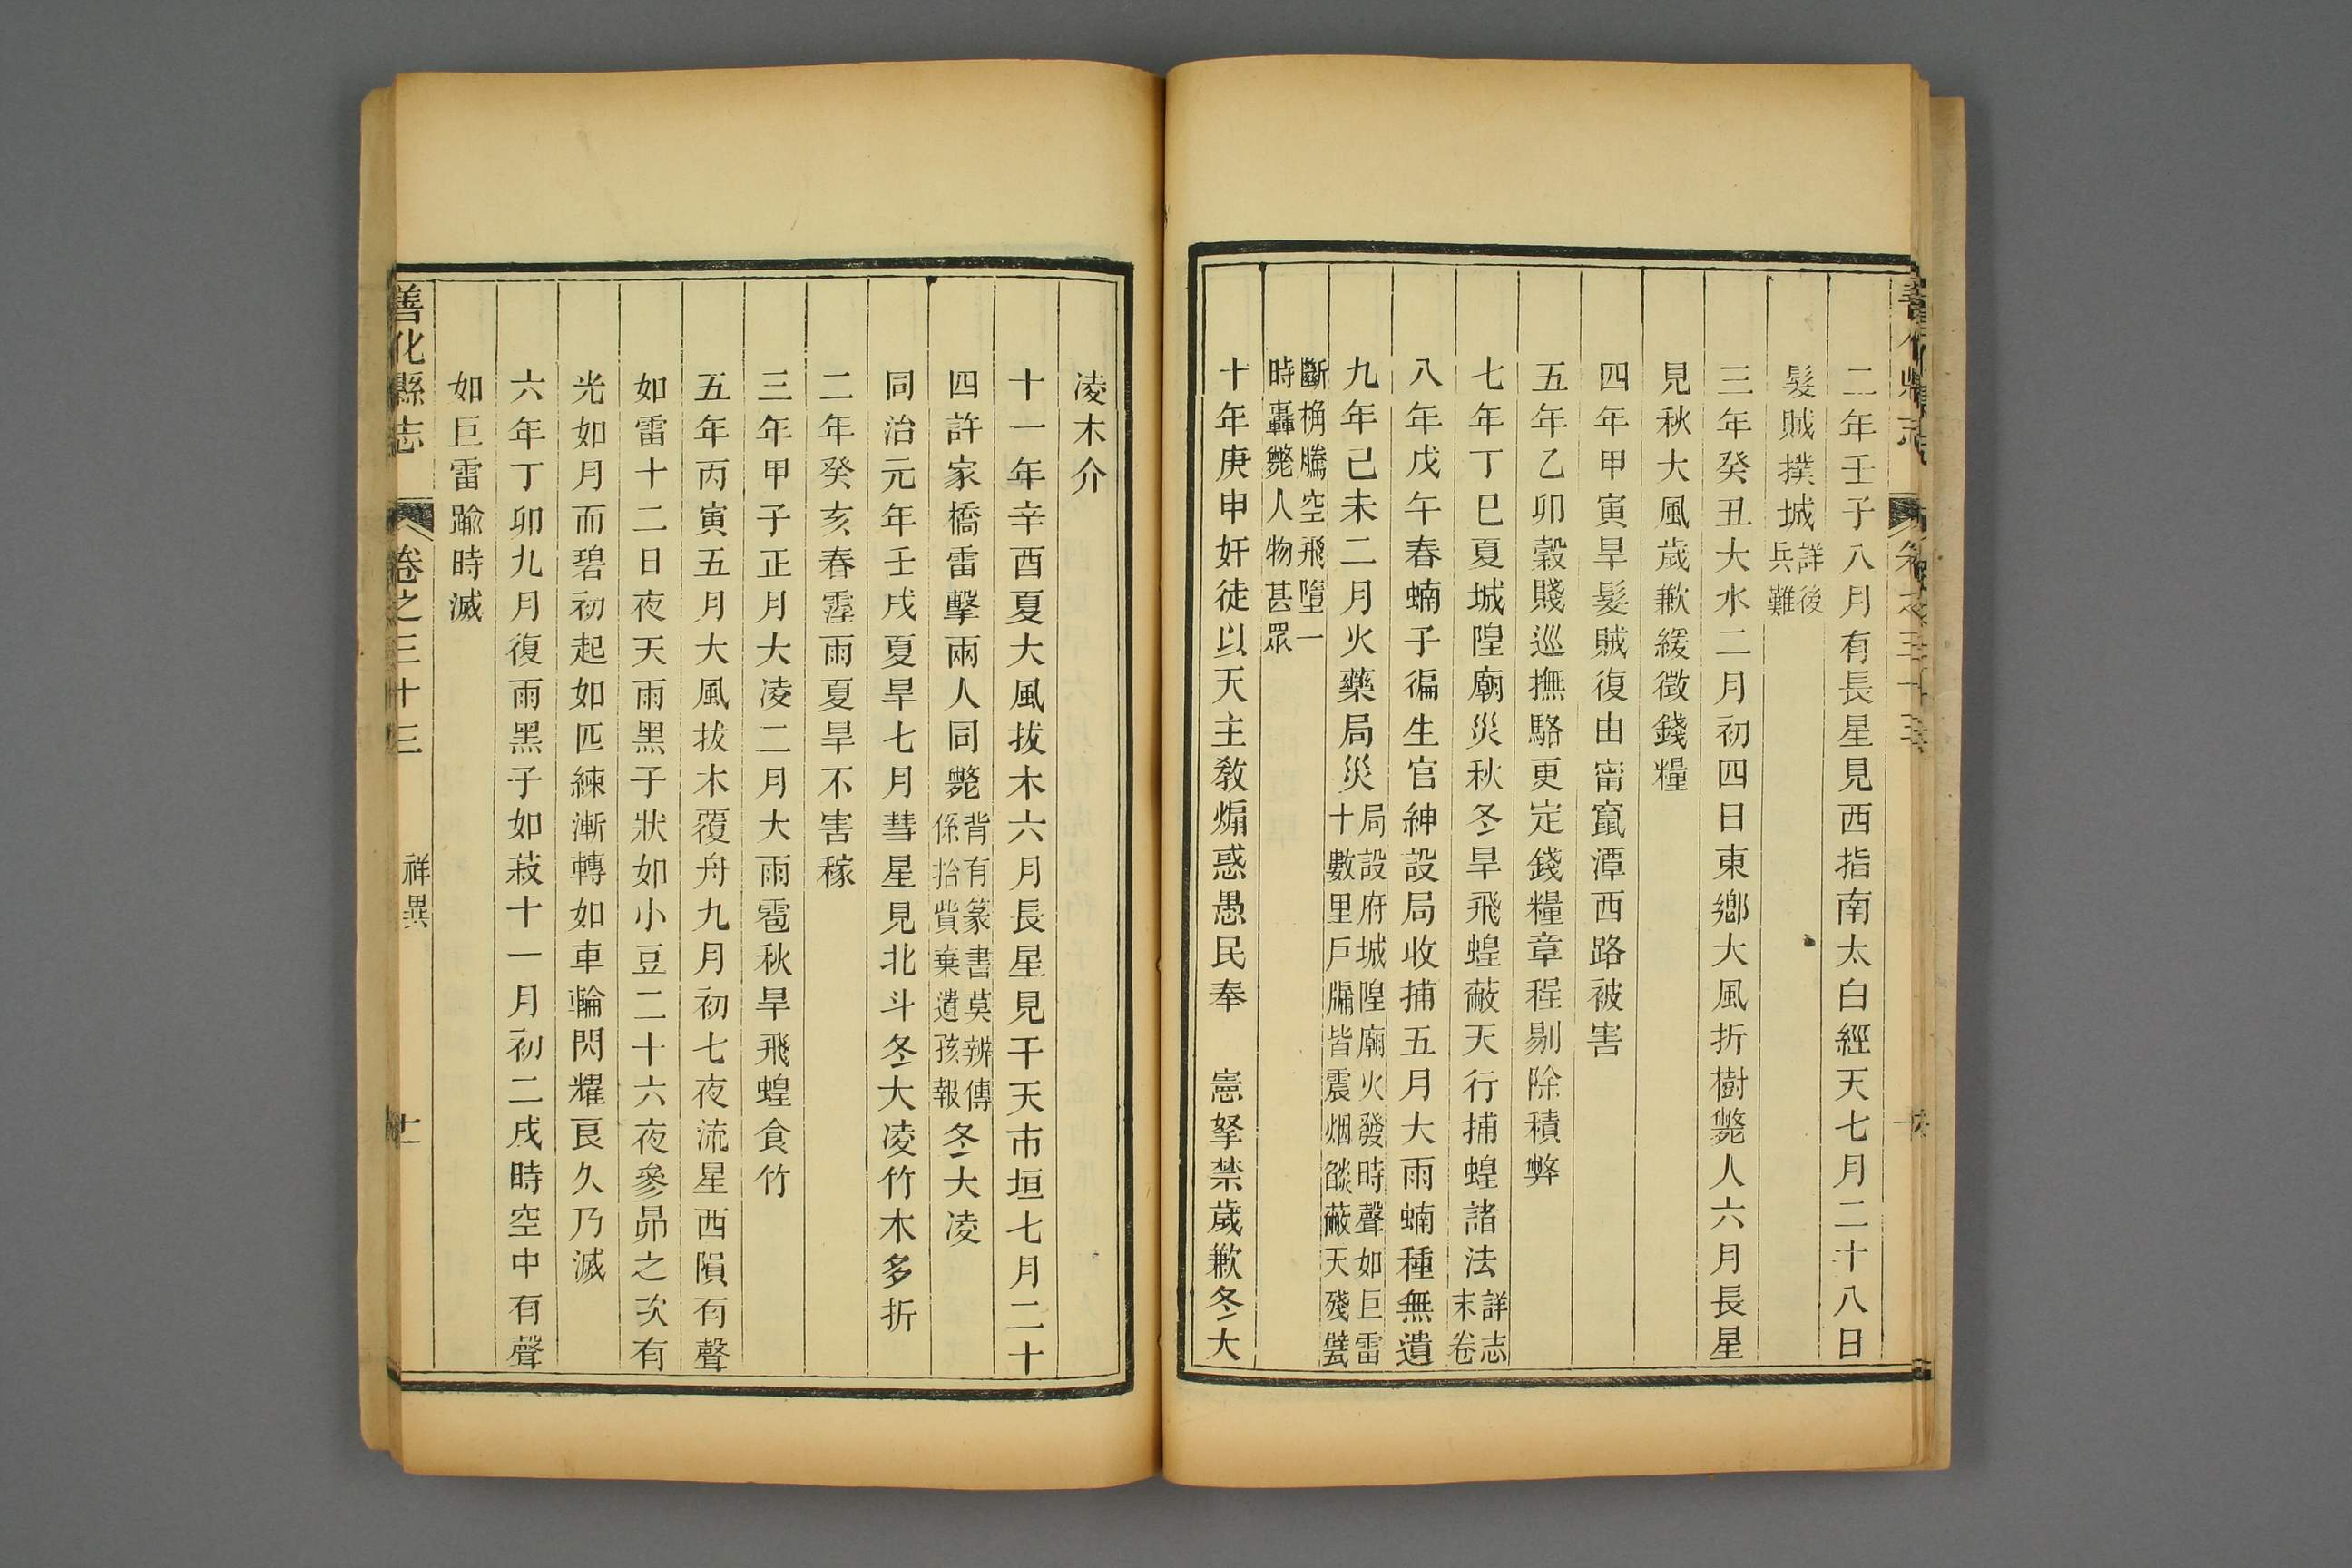 二年壬子八月有長星見西指南太白經天七月二十八日
髮賊撲城詳後兵難
三年癸丑大水二月初四日東鄉大風折樹斃人六月長星
見秋大風歲歉緩徵錢糧
四年甲寅旱髮賊復由甯竄潭西路被害
五年乙卯穀賤巡撫駱更定錢糧章程剔除積弊
七年丁巳夏城隍廟災秋冬旱飛蝗蔽天行捕蝗諸法詳志末卷
八年戊午春蝻子徧生官紳設局收捕五月大雨蝻種無遺
九年己未二月火藥局災局設府城隍廟火發時聲如巨雷十數里戶牖皆震烟燄蔽天殘甓
斷桷騰空飛墮一時轟斃人物甚眾
十年庚申奸徒以天主教煽惑愚民奉 憲拏禁歲歉冬大
凌木介
十一年辛酉夏大風拔木六月長星見干天市垣七月二十
四許家橋雷擊兩人同斃背有篆書莫辨傳係拾貲棄遺孩報冬大凌
同治元年壬戌夏旱七月彗星見北斗冬大凌竹木多折
二年癸亥春霪雨夏旱不害稼
三年甲子正月大凌二月大雨雹秋旱飛蝗食竹
五年丙寅五月大風拔木覆舟九月初七夜流星西隕有聲
如雷十二日夜天雨黑子狀如小豆二十六夜參昴之次有
光如月而碧初起如匹練漸轉如車輪閃耀良久乃滅
六年丁卯九月復雨黑子如菽十一月初二戌時空中有聲
如巨雷踰時滅
善化縣志 卷之三十三 祥異